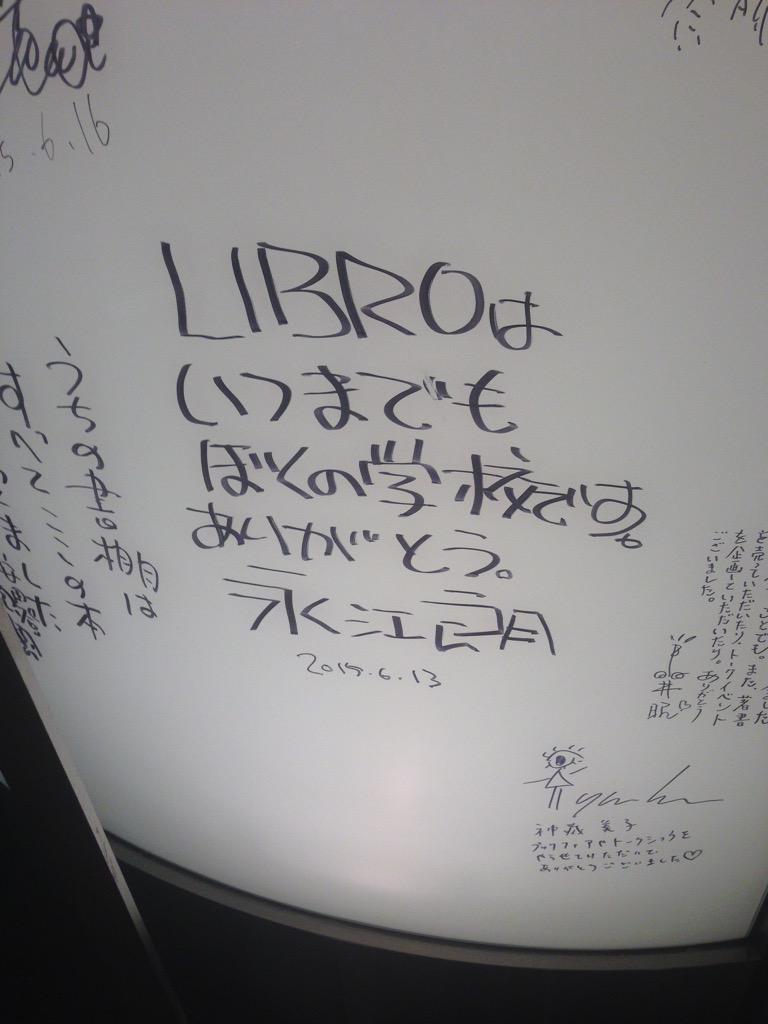 .6.16
LIBROは
いつまでも
ぼくの学校です。
ありがとう。
永江朗
2015.6.13
うちの書棚は
すべてここの本
ことでも。また、著書
を売っていただいたり、トークイベント
を企画していただいたり。ありがとう
ございました。
井
眠
神蔵 美子
ブックフェアやトークショウを
やらせていただいて
ありがとうございました♡